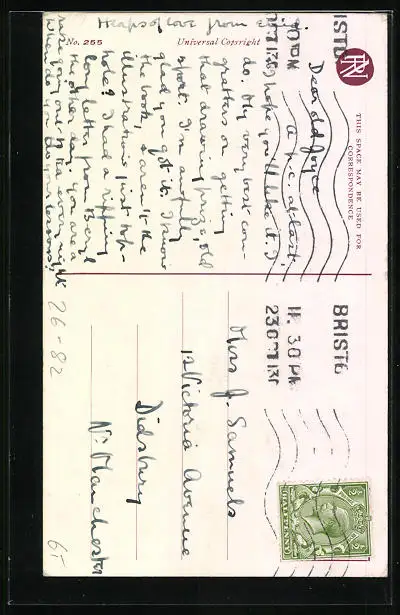 Heaps of love from
No. 255
Universal Copyright
THIS SPACE MAY BE USED FOR
CORRESPONDENCE
Dear old Joyce
A p.c. at last!
I hope you'll like it. I
do. My very best con-
gratters on getting
that drawing prize, old
sport. I'm awfully
glad you got it. I know
the book, & aren't the
illustrations just top-
hole? I had a ripping
long letter from Beryl
the other day. You are a
one to tea every night
when do you do your lessons?
BRISTOL
11. 30 PM
23 OCT 13
Miss J. Samuels
12 Victoria Avenue
Didsbury
Nr Manchester
HALFPENNY
26-82
65